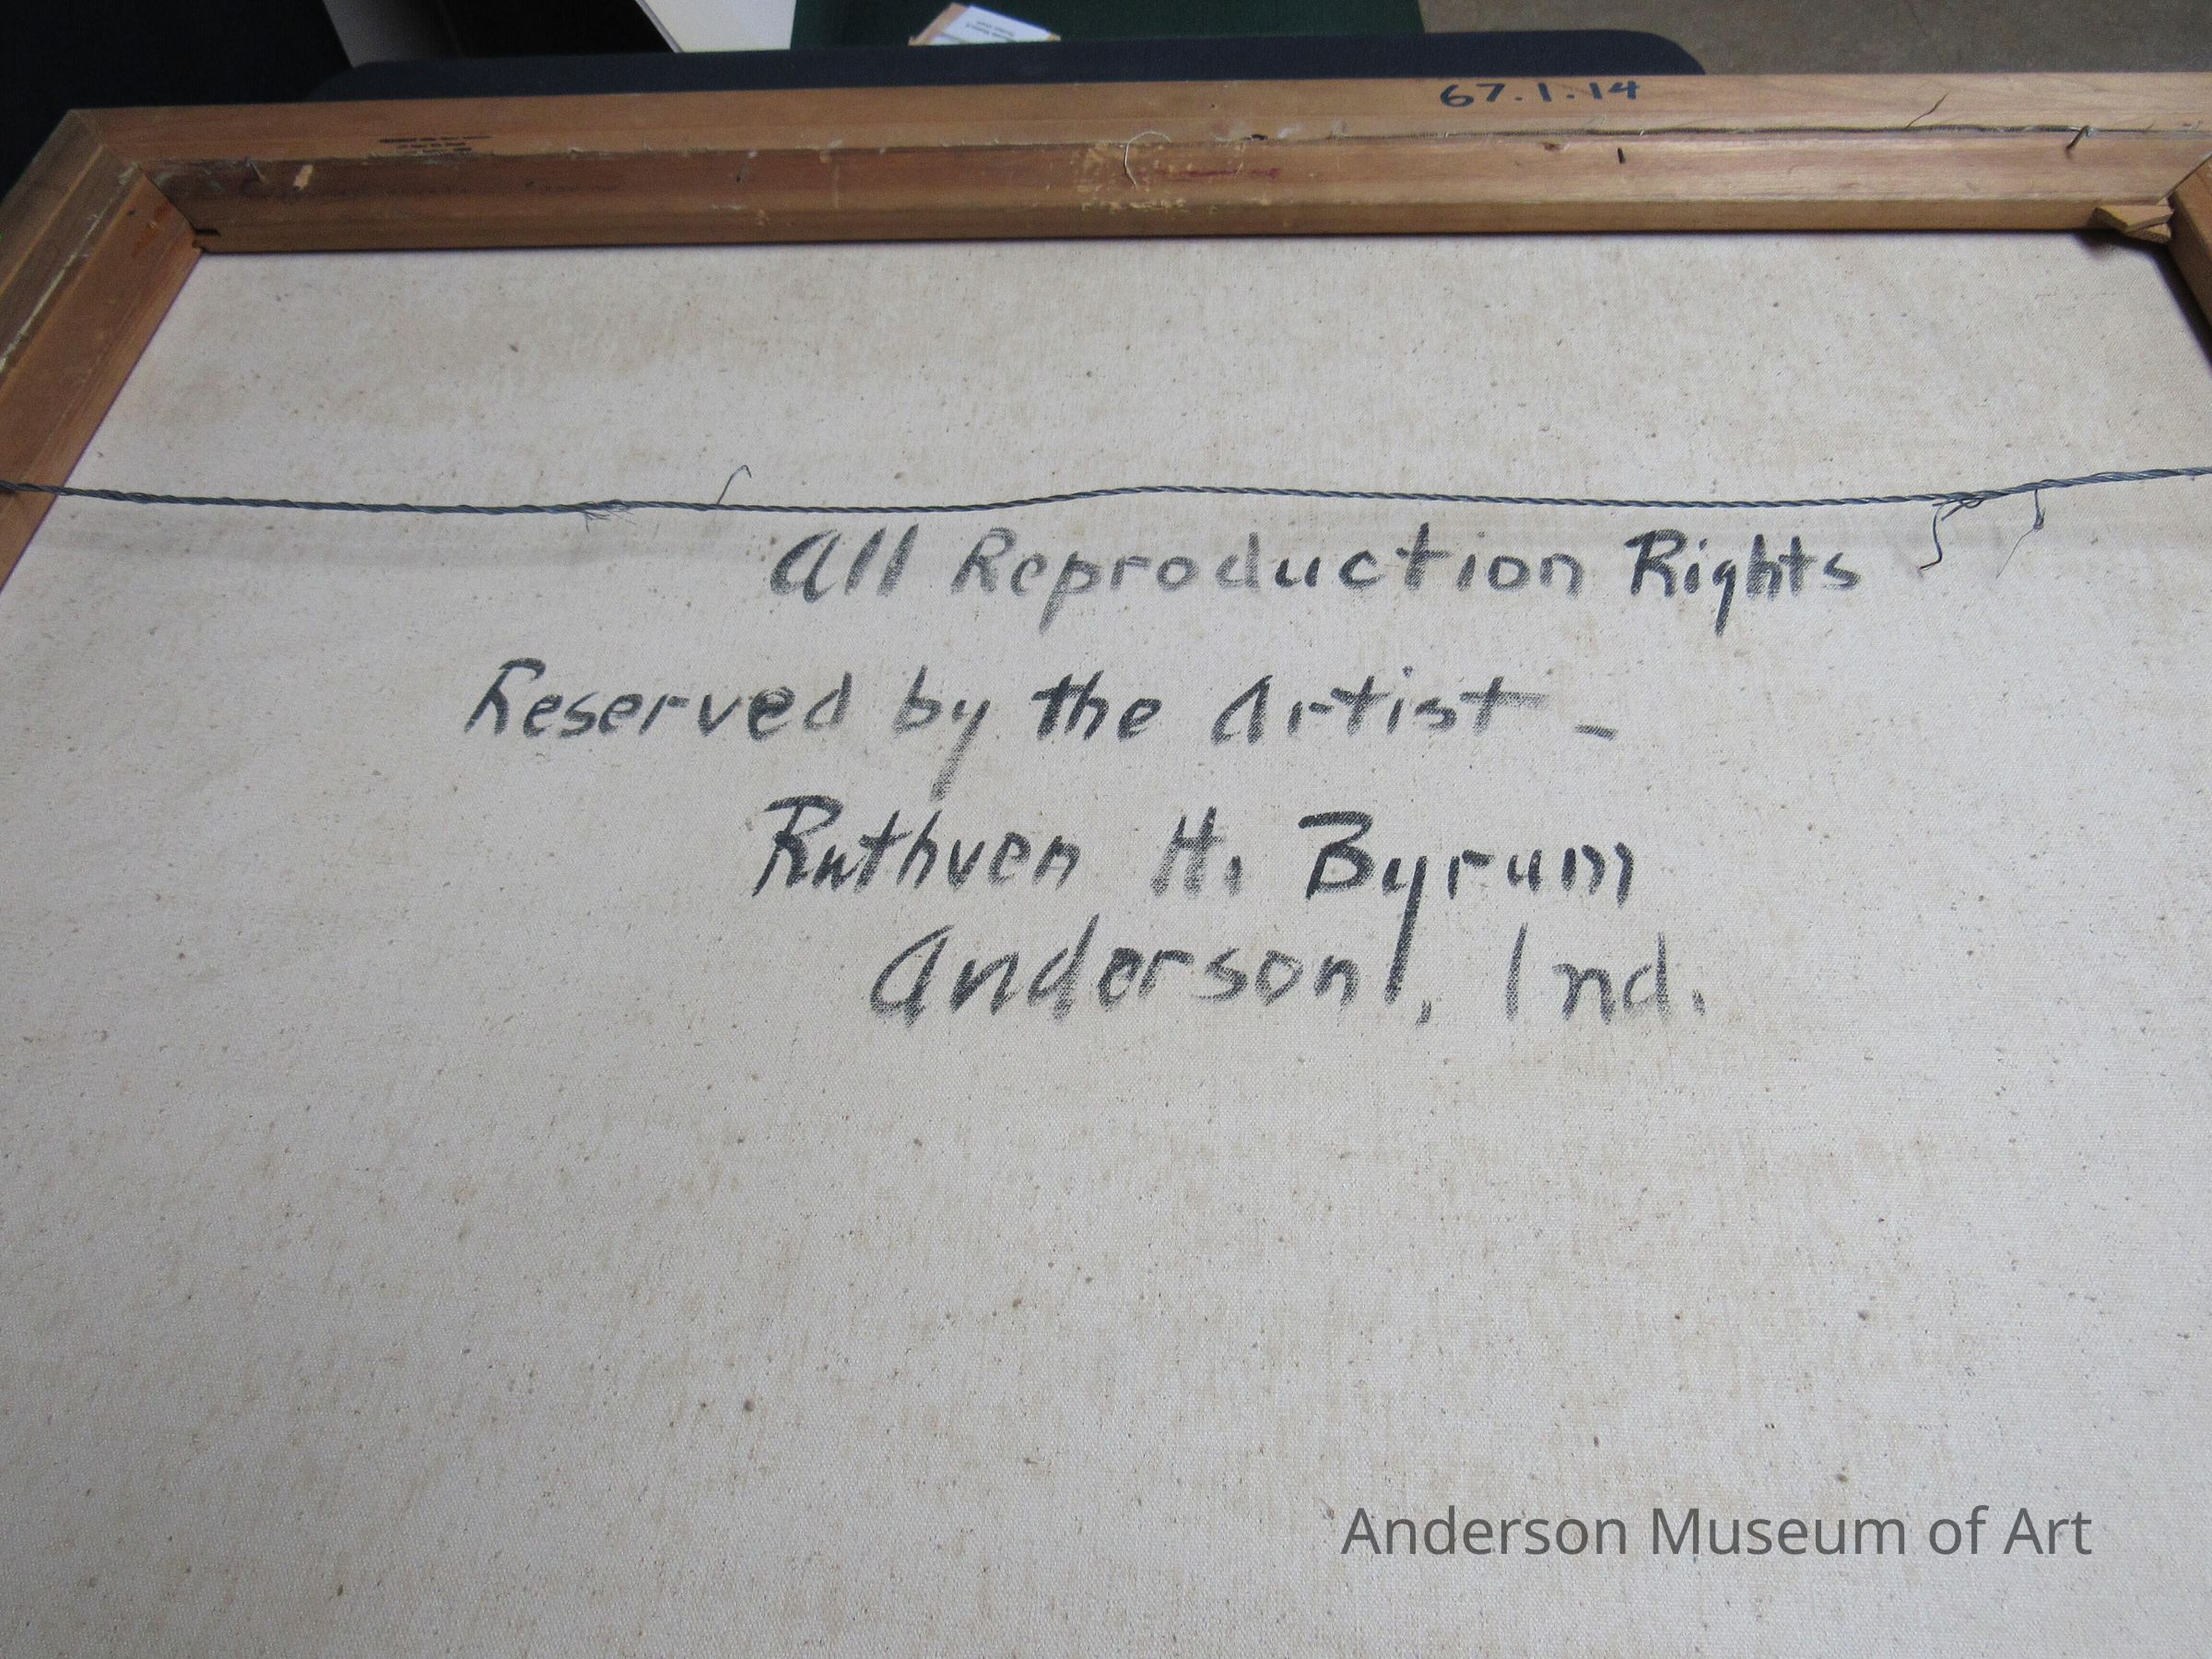 67.1.14
All Reproduction Rights
Reserved by the Artist -
Ruthven H. Byrum
Anderson, Ind.
Anderson Museum of Art